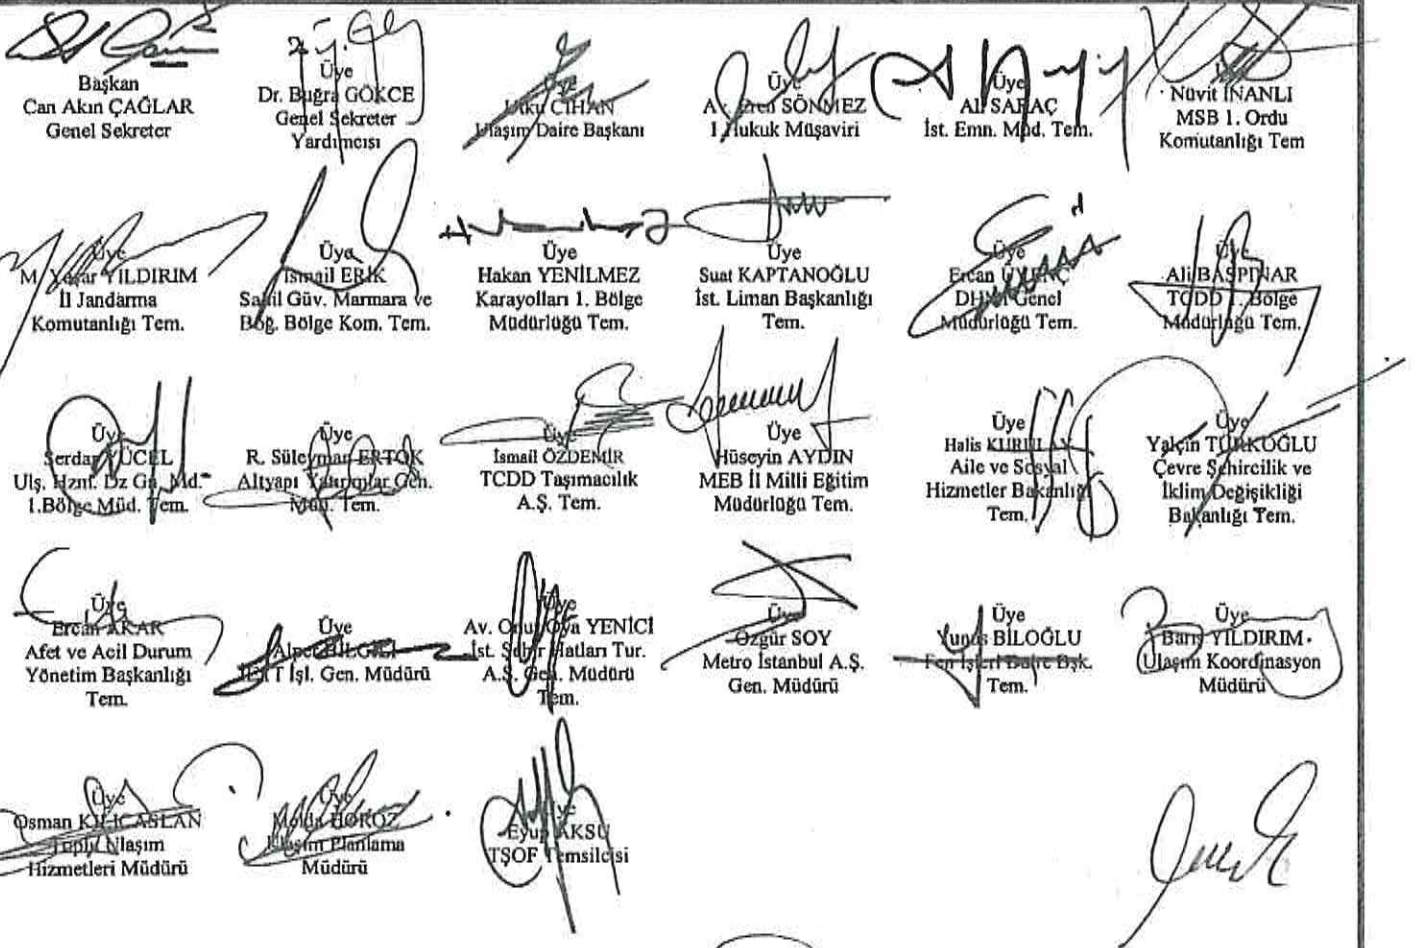 Başkan
Can Akın ÇAĞLAR
Genel Sekreter
Üye
Dr. Buğra GÖKCE
Genel Sekreter
Yardımcısı
Üye
Utku CİHAN
Ulaşım Daire Başkanı
Üye
Av. Eren SÖNMEZ
1.Hukuk Müşaviri
Üye
Ali SARAÇ
İst. Emn. Müd. Tem.
Nüvit İNANLI
MSB 1. Ordu
Komutanlığı Tem
Üye
M. Yaşar YILDIRIM
İl Jandarma
Komutanlığı Tem.
Üye
İsmail ERİK
Sahil Güv. Marmara ve
Boğ. Bölge Kom. Tem.
Üye
Hakan YENİLMEZ
Karayolları 1. Bölge
Müdürlüğü Tem.
Üye
Suat KAPTANOĞLU
İst. Liman Başkanlığı
Tem.
Üye
Ercan
DHMİ Genel
Müdürlüğü Tem.
Üye
Ali BAŞPINAR
TCDD 1. Bölge
Müdürlüğü Tem.
Üye
Serdar YÜCEL
Ulş. Hzmt. Dz Gn. Md.
1.Bölge Müd. Tem.
Üye
R. Süleyman ERTOK
Altyapı Yatırımlar Gen.
Müd. Tem.
Üye
İsmail ÖZDEMİR
TCDD Taşımacılık
A.Ş. Tem.
Üye
Hüseyin AYDIN
MEB İl Milli Eğitim
Müdürlüğü Tem.
Üye
Halis
Aile ve Sosyal
Hizmetler Bakanlığı
Tem.
Üye
Yalçın TÜRKOĞLU
Çevre Şehircilik ve
İklim Değişikliği
Bakanlığı Tem.
Üye
Ercan AKAR
Afet ve Acil Durum
Yönetim Başkanlığı
Tem.
Üye
Alper BİLGİLİ
İETT İşl. Gen. Müdürü
Üye
Av. Onur Oya YENİCİ
İst. Şehir Hatları Tur.
A.Ş. Gen. Müdürü
Tem.
Üye
Özgür SOY
Metro İstanbul A.Ş.
Gen. Müdürü
Üye
Yunus BİLOĞLU
Fen İşleri Daire Bşk.
Tem.
Üye
Barış YILDIRIM
Ulaşım Koordinasyon
Müdürü
Üye
Osman KILIÇASLAN
Toplu Ulaşım
Hizmetleri Müdürü
Üye
HOROZ
Ulaşım Planlama
Müdürü
Üye
Eyup AKSU
TŞOF Temsilcisi